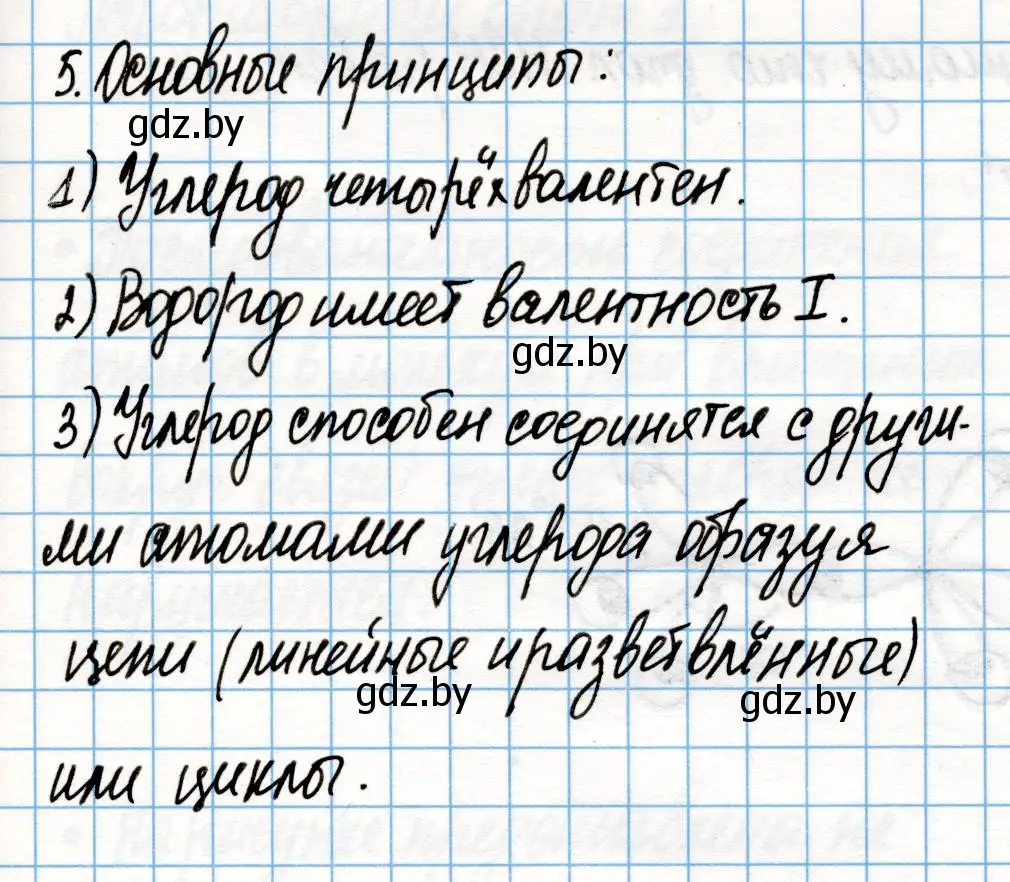 5. Основные принципы:
gdz.by
1) Углерод четырёхвалентен.
2) Водород имеет валентность I.
gdz.by
3) Углерод способен соединятся с други-
ми атомами углерода образуя
цепи (линейные и разветвлённые)
gdz.by
gdz.by
или циклы.